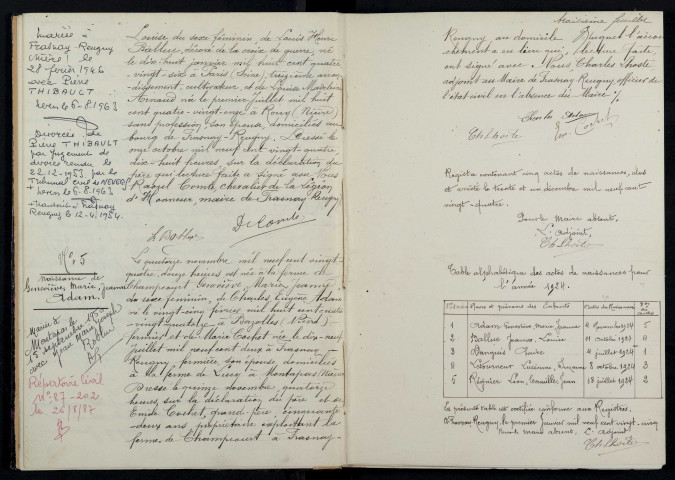 Mariée à
Frasnay-Reugny
(Nièvre) le
28 février 1946
avec Pierre
THIBAULT
Nevers le 6.8.1963
Divorcée de
Pierre THIBAULT
par jugement de
divorce rendu le
22.12.1953 par le
Tribunal civil de NEVERS
Nevers le 6.8.1963
Reugny le 12.4.1954
Louise du sexe féminin, de Louis Henri
Balleux, décoré de la croix de guerre, né
le dix-huit janvier mil huit cent quatre
vingt-six à Paris (Seine) treizième arron-
dissement, cultivateur et de Louise Madeleine
Arnaud née le premier juillet mil huit
cent quatre-vingt-onze à Rouy (Nièvre)
sans profession, son épouse, domiciliés au
bourg de Frasnay-Reugny. Dressé le
onze octobre mil neuf cent vingt-quatre
dix-huit heures, sur la déclaration du
père qui lecture faite a signé avec Nous
Comte, chevalier de la légion
d'Honneur, maire de Frasnay Reugny
De Comte
N° 5
Naissance de
Geneviève, Marie, Jeanne
Adam.
Mariée à
Montapas le
15 septembre
avec
Répertoire Civil
n° 87-202
le 26/8/87
Le quatorze novembre mil neuf cent vingt-
quatre, douze heures est née à la ferme de
Champcourt Geneviève, Marie, Jeanne,
du sexe féminin, de Charles Eugène Adam
né le vingt-cinq février mil huit cent
vingt-quatorze à Bazolles (Nièvre)
fermier et de Marie Cochet née le dix-neuf
juillet mil neuf cent deux à Frasnay-
Reugny, fermière, son épouse, domiciliés
à la ferme de Lieu à Montapas (Nièvre)
Dressé le quinze novembre, quatorze
heures, sur la déclaration du père et de
Emile Cochet, grand-père, cinquante-
deux ans, propriétaire exploitant la
ferme de Champcourt à Frasnay-
Troisième feuillet
Reugny au domicile duquel l'accou-
chement a eu lieu qui, lecture faite,
ont signé avec Nous Charles Lhoste
adjoint au Maire de Frasnay Reugny officier de
l'état civil en l'absence du Maire
Ch Lhoste
Cochet
Registre contenant cinq actes de naissances, clos
et arrêté le trente et un décembre mil neuf cent
vingt-quatre.
Pour le maire absent,
L'adjoint,
Ch Lhoste
Table alphabétique des actes de naissances pour
l'année 1924.
Noms et prénoms des Enfants
1 Adam Geneviève, Marie, Jeanne 14 novembre 1924 5
2 Balleux Jeanne, Louise 11 octobre 1924
3 juillet 1924 1
4 Lucienne, Suzanne 8 octobre 1924 3
5 Régnier Léon, Camille, Jean 18 juillet 1924 2
La présente table est certifiée conforme aux Registres.
À Frasnay Reugny, le premier janvier mil neuf cent vingt-cinq
Pour le maire absent, L'adjoint
Ch Lhoste